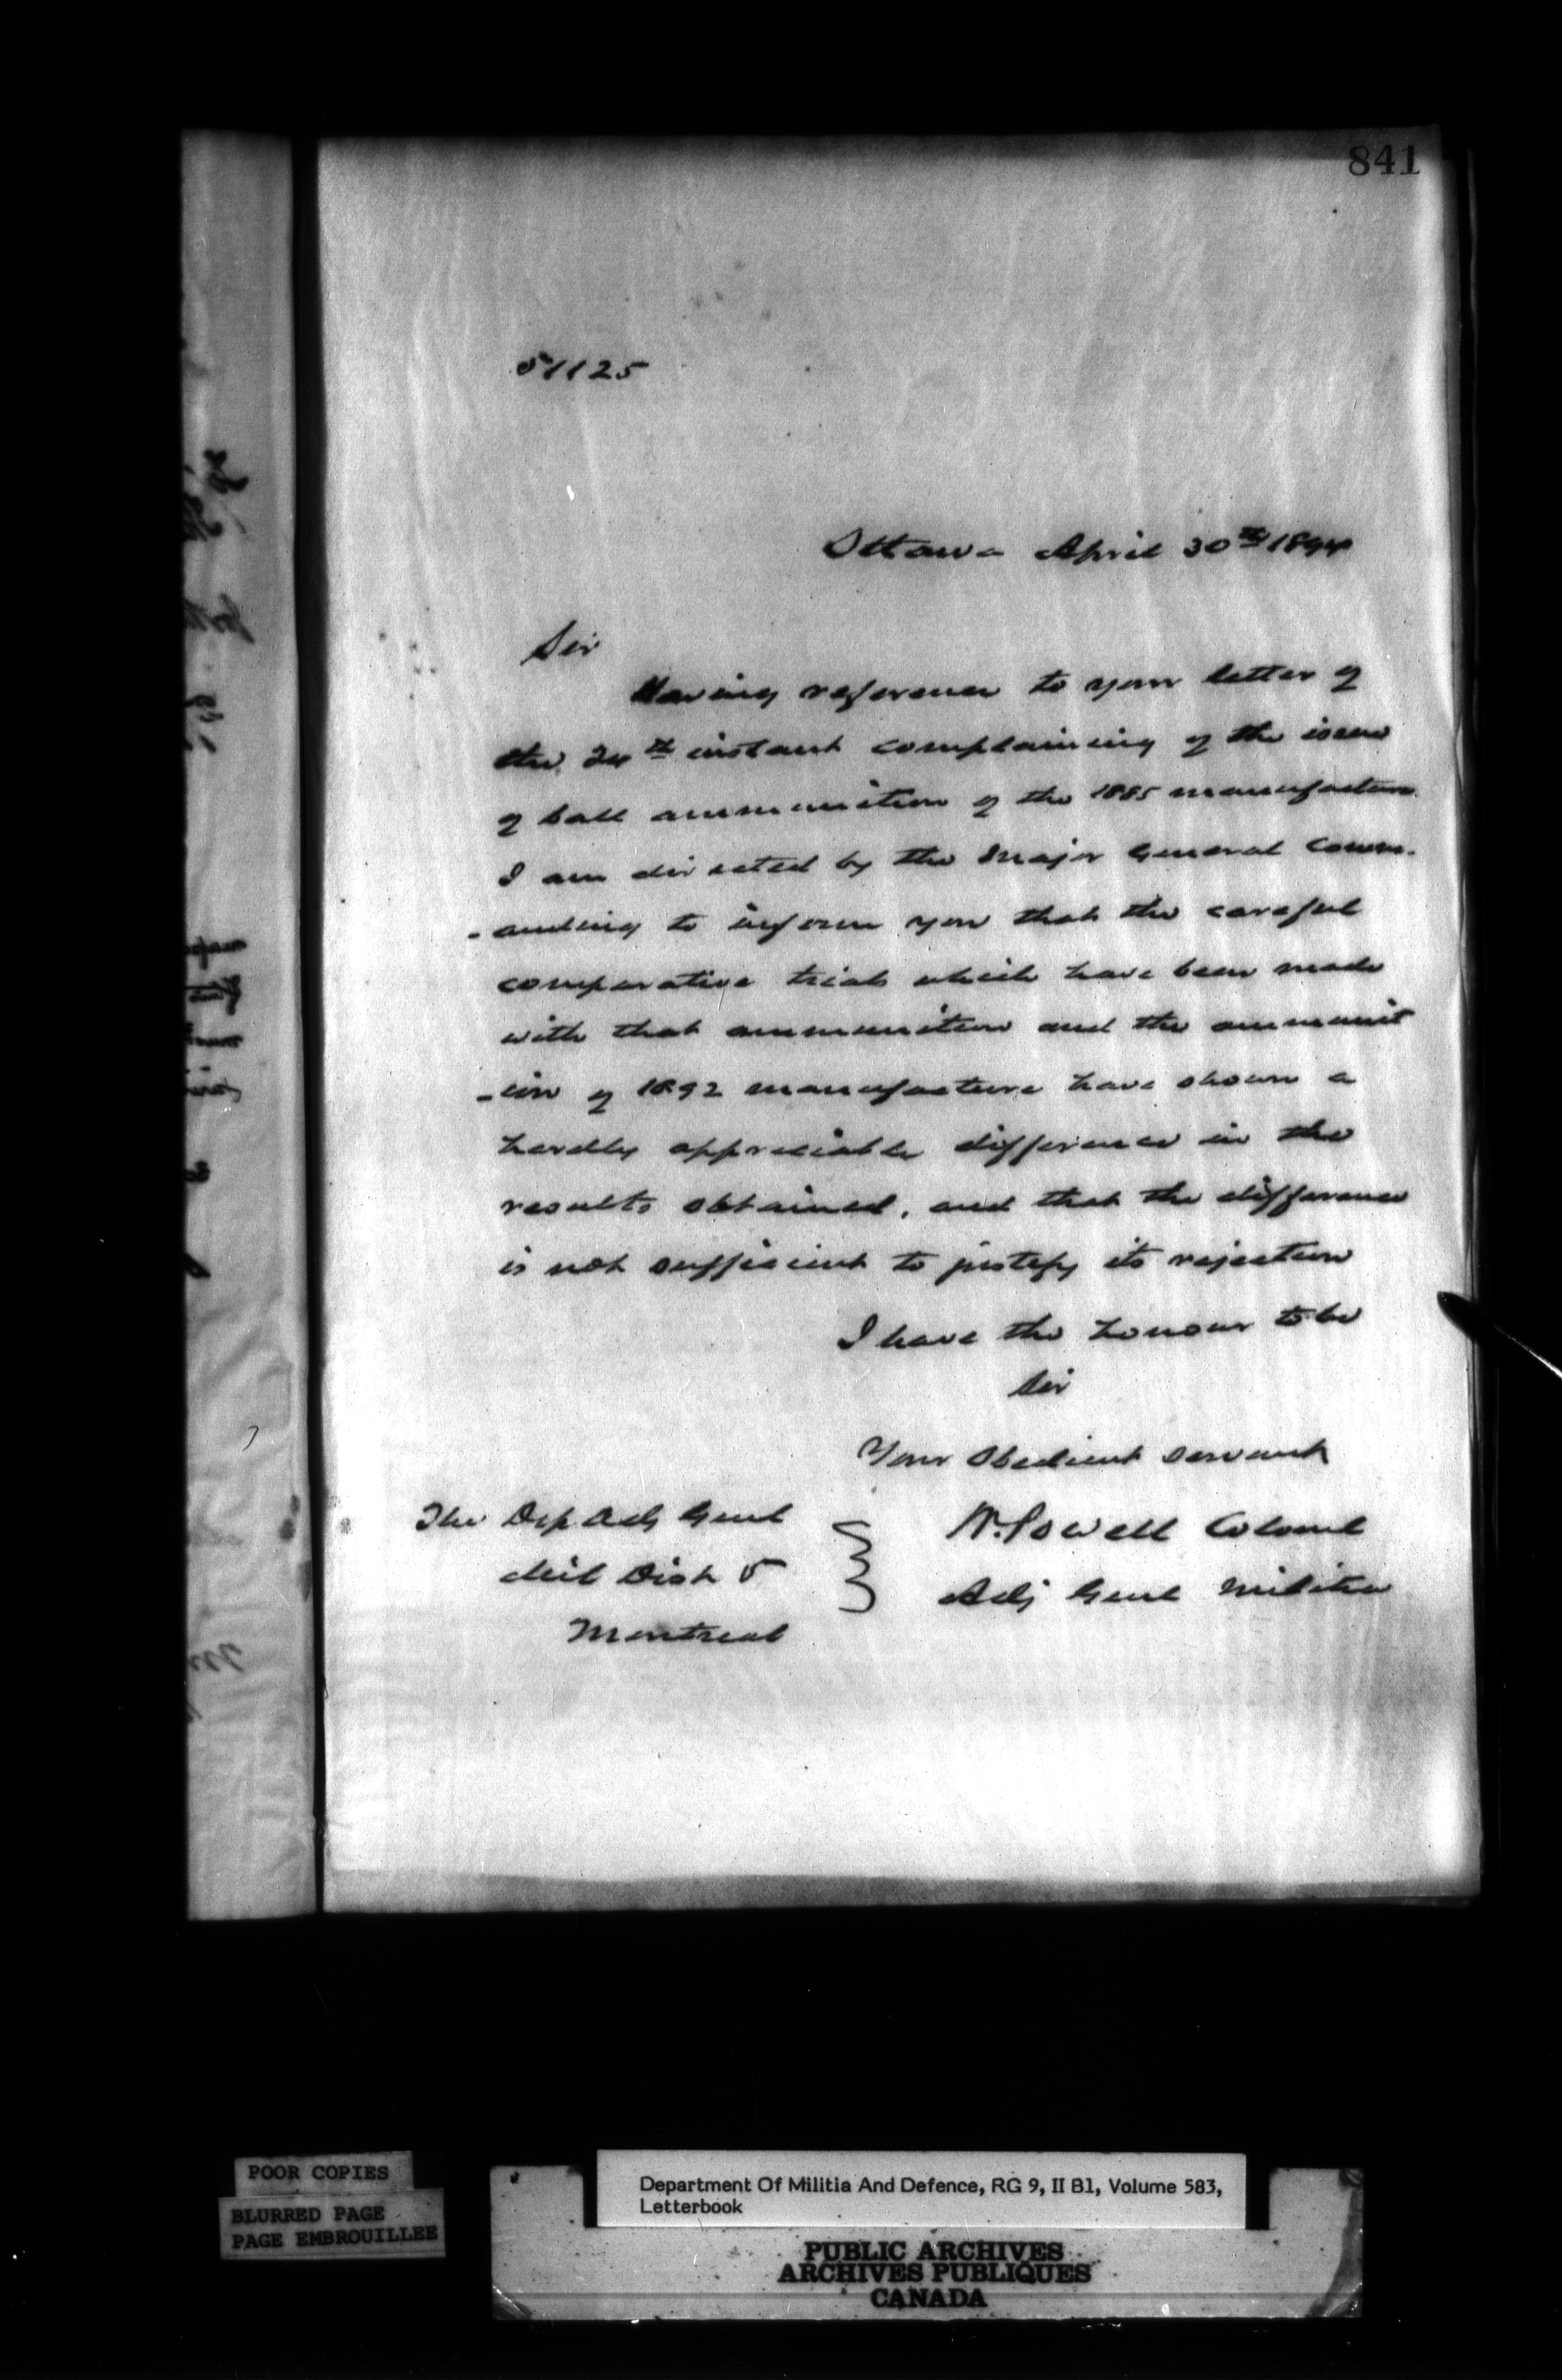 841
51125
Ottawa April 30th 1894
Sir
Having reference to your letter of
the 24th instant complaining of the issue
of ball ammunition of the 1885 manufacture
I am directed by the Major General Comm-
-anding to inform you that the careful
comparative trials which have been made
with that ammunition and the ammunit
-ion of 1892 manufacture have shown a
hardly appreciable difference in the
results obtained, and that the difference
is not sufficient to justify its rejection
I have the honour to be
Sir
Your Obedient servant
W. Powell Colonel
Adj Genl Militia
The Dep Adj Genl
Mil Dist 5
Montreal
POOR COPIES
BLURRED PAGE
PAGE EMBROUILLEE
Department Of Militia And Defence, RG 9, II B1, Volume 583,
Letterbook
PUBLIC ARCHIVES
ARCHIVES PUBLIQUES
CANADA